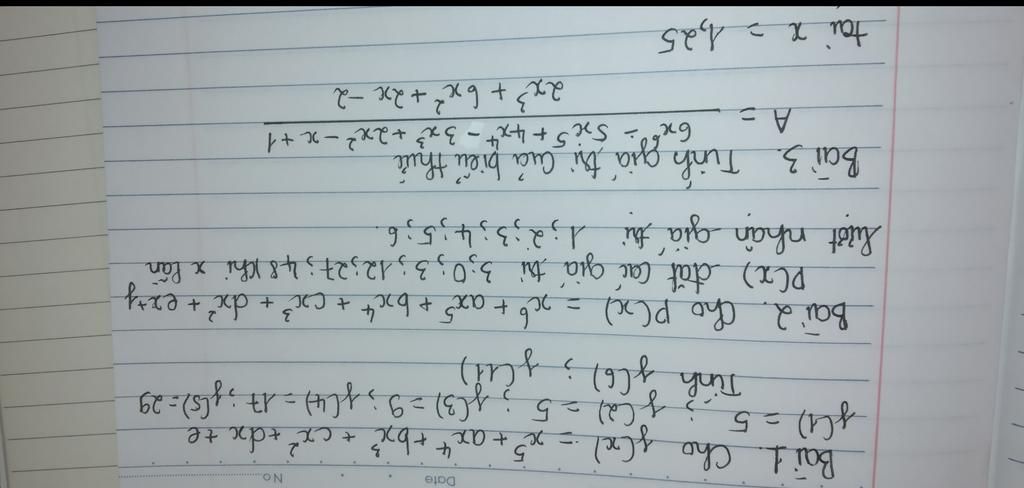 Date No
Bài 1. Cho f(x) = x⁵ + ax⁴ + bx³ + cx² + dx + e
f(1) = 5 ; f(2) = 5 ; f(3) = 9 ; f(4) = 17 ; f(5) = 29
Tính f(6) ; f(11)
Bài 2. Cho P(x) = x⁶ + ax⁵ + bx⁴ + cx³ + dx² + ex + f
P(x) đạt các giá trị 3; 0; 3; 12; 27; 48 khi x lần
lượt nhận giá trị 1; 2; 3; 4; 5; 6.
Bài 3. Tính giá trị của biểu thức
A = (6x⁶ - 5x⁵ + 4x⁴ - 3x³ + 2x² - x + 1)/(2x³ + 6x² + 2x - 2)
tại x = 1,25